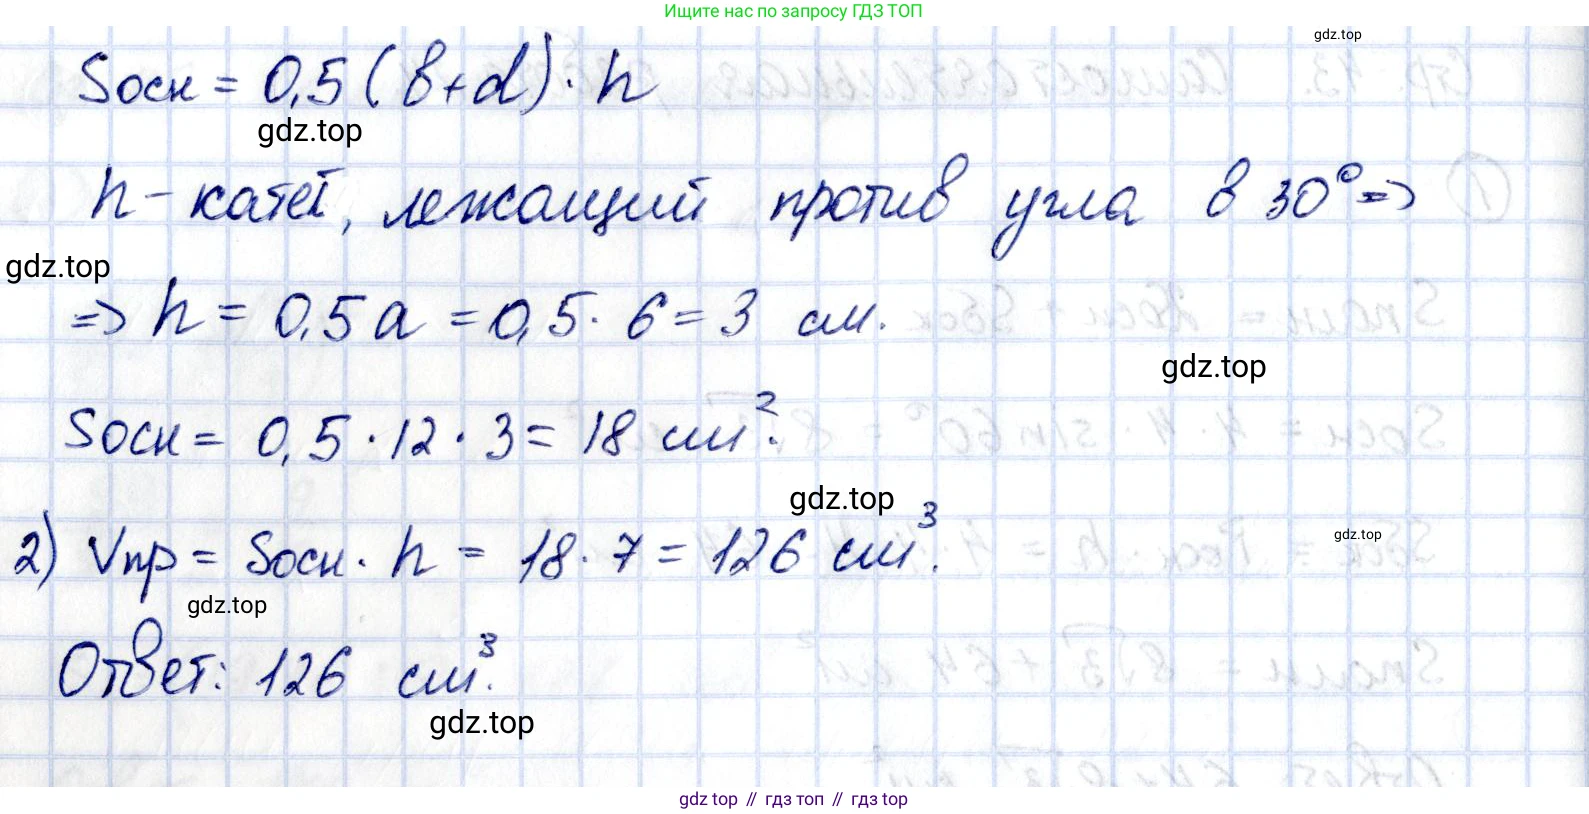 Ищите нас по запросу ГДЗ ТОП
gdz.top
Sосн = 0,5 (b+d) · h
gdz.top
h - катет, лежащий против угла в 30° =>
gdz.top
=> h = 0,5 a = 0,5 · 6 = 3 см.
gdz.top
Sосн = 0,5 · 12 · 3 = 18 см².
gdz.top
2) Vпр = Sосн · h = 18 · 7 = 126 см³.
gdz.top
gdz.top
Ответ: 126 см³.
gdz.top
gdz top // гдз топ // гдз top